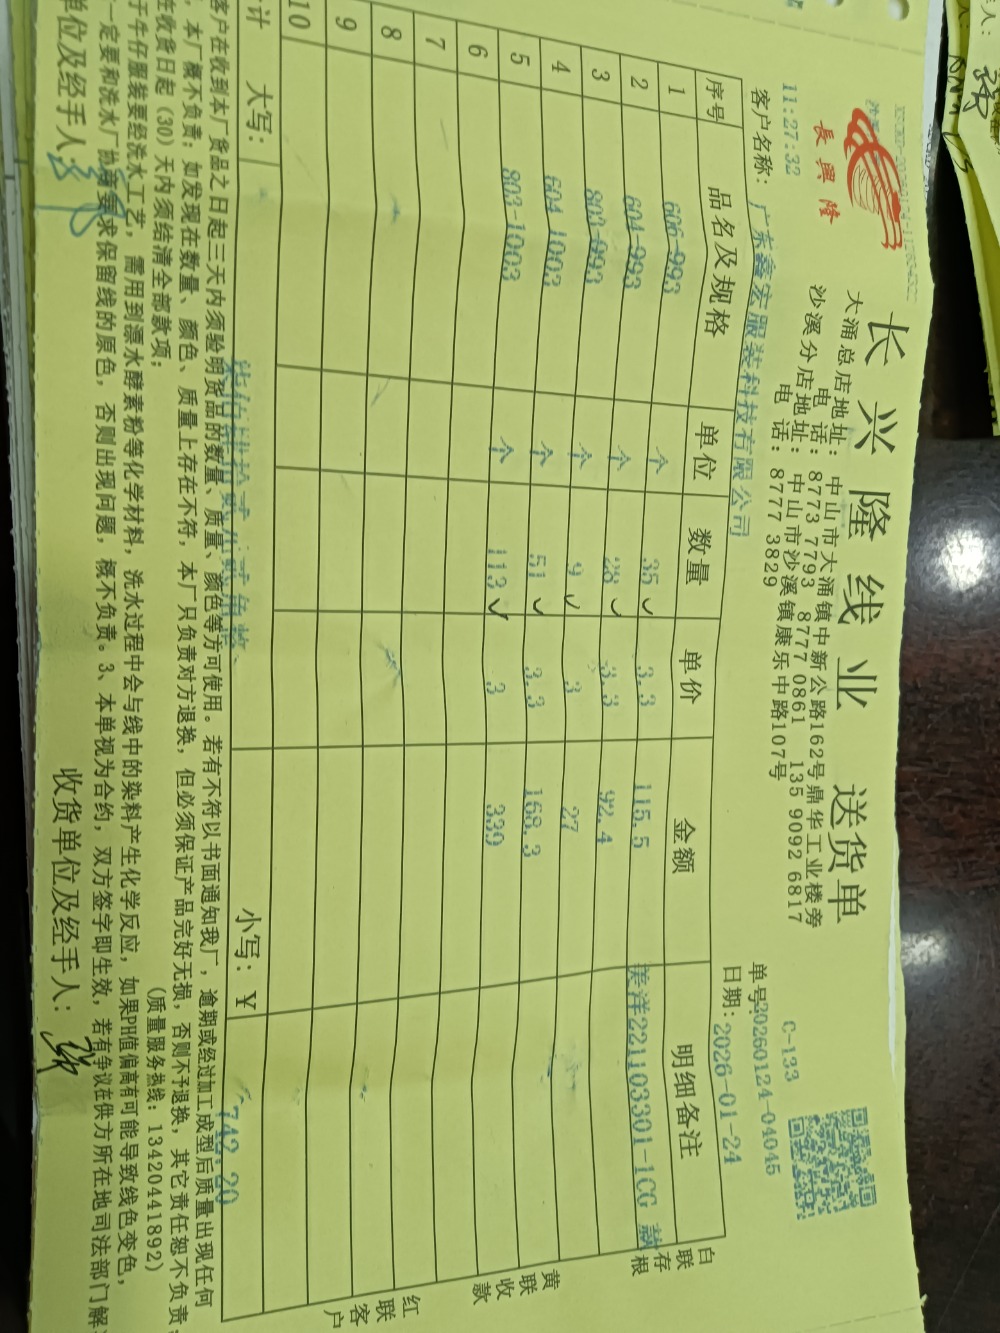 长兴隆线业 送货单
長興隆
大涌总店地址：中山市大涌镇中新公路162号鼎华工业楼旁
电 话：8773 7793 8777 0861 135 9092 6817
沙溪分店地址：中山市沙溪镇康乐中路107号
电 话：8777 3829
11:27:32
C-133
单号20260124-04045
客户名称：广东鑫宏服装科技有限公司
日期：2026-01-24
序号 品名及规格 单位 数量 单价 金额 明细备注
1 606-993 个 35 3.3 115.5 美洋221103301-1CG 款
2 604-993 个 28 3.3 92.4
3 803-993 个 9 3 27
4 604-1003 个 51 3.3 168.3
5 803-1003 个 113 3 339
6
7
8
9
10
计 大写：柒佰肆拾贰元贰角整 小写：¥ 742.20
白联存根
黄联收款
红联客户
客户在收到本厂货品之日起三天内须验明货品的数量、质量、颜色等方可使用。若有不符以书面通知我厂，逾期或经过加工成型后质量出现任何
，本厂概不负责；如发现在数量、颜色、质量上存在不符，本厂只负责对方退换，但必须保证产品完好无损，否则不予退换，其它责任恕不负责；
在收货日起（30）天内须结清全部款项；
（质量服务热线：13420441892）
于牛仔服装要经洗水工艺，需用到漂水酵素粉等化学材料，洗水过程中会与线中的染料产生化学反应，如果PH值偏高有可能导致线色变色，
一定要和洗水厂协商要求保留线的原色，否则出现问题，概不负责。3、本单视为合约，双方签字即生效，若有争议在供方所在地司法部门解
单位及经手人：
收货单位及经手人：